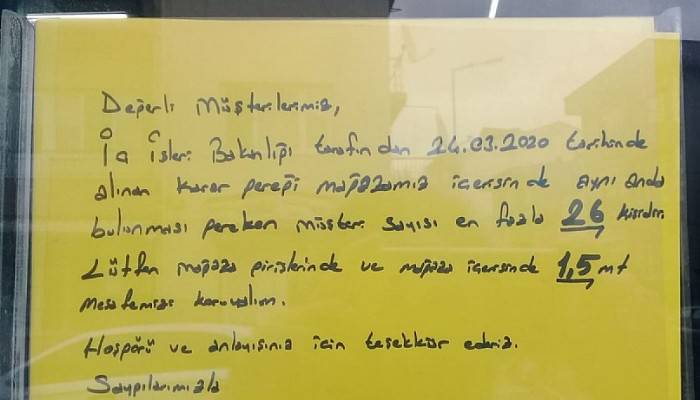 Değerli Müşterilerimiz,
İç İşleri Bakanlığı tarafından 24.03.2020 tarihinde
alınan karar gereği mağazamız içerisinde aynı anda
bulunması gereken müşteri sayısı en fazla 26 kişidir.
Lütfen mağaza girişlerinde ve mağaza içersinde 1,5 mt
mesafemizi koruyalım.
Hoşgörü ve anlayışınız için teşekkür ederiz.
Saygılarımızla